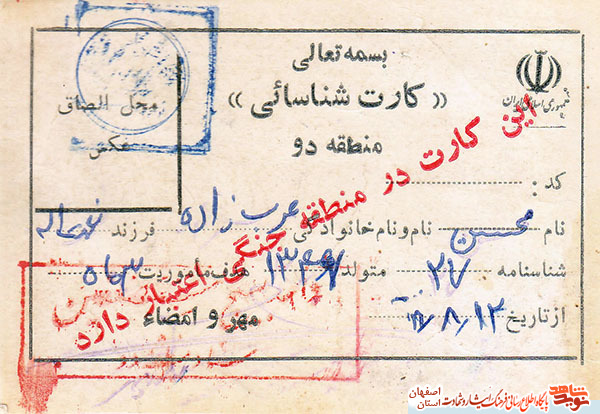 بسمه تعالی
« کارت شناسائی »
منطقه دو
جمهوری اسلامی ایران
محل الصاق
عکس
کد :
نام محسن نام و نام خانوادگی عرب زاده فرزند
شناسنامه ۲۷ متولد ۱۳۴۷ هدف ماموریت
از تاریخ ۱۳/۸/ مهر و امضاء
این کارت در منطقه جنگی اعتبار دارد
نوید شاهد
پایگاه اطلاع رسانی فرهنگ ایثار و شهادت
استان اصفهان